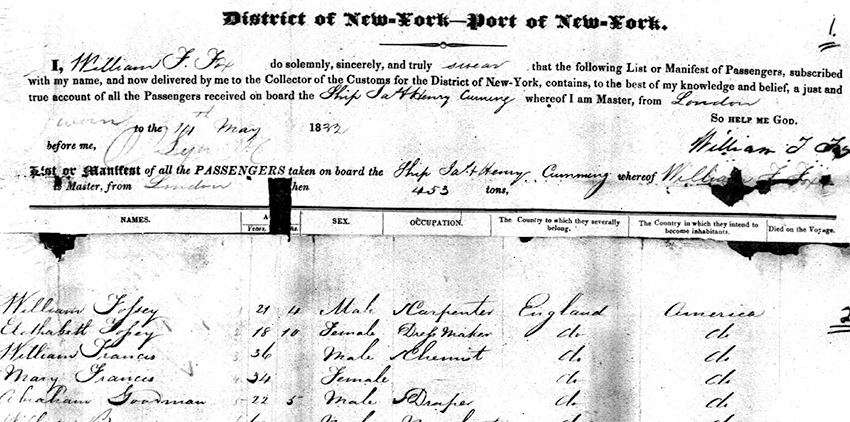 District of New-York—Port of New-York.
1.
I, William F. Fox do solemnly, sincerely, and truly swear that the following List or Manifest of Passengers, subscribed
with my name, and now delivered by me to the Collector of the Customs for the District of New-York, contains, to the best of my knowledge and belief, a just and
true account of all the Passengers received on board the Ship Jas & Henry Cumming whereof I am Master, from London
So HELP ME GOD.
Sworn to the 24th May 1832
before me, William F Fox
List or Manifest of all the PASSENGERS taken on board the Ship Jas & Henry Cumming whereof William F Fox
is Master, from London 453 tons,
NAMES. Years. SEX. OCCUPATION. The Country to which they severally belong. The Country in which they intend to become inhabitants. Died on the Voyage.
William Fossey 21 4 Male Carpenter England America 2
Elizthabeth Fossey 2 18 10 Female Dress Maker do do
William Francis 3 36 Male Chemist do do
Mary Francis 4 34 Female do do
Abraham Goodman 5 22 5 Male Draper do do